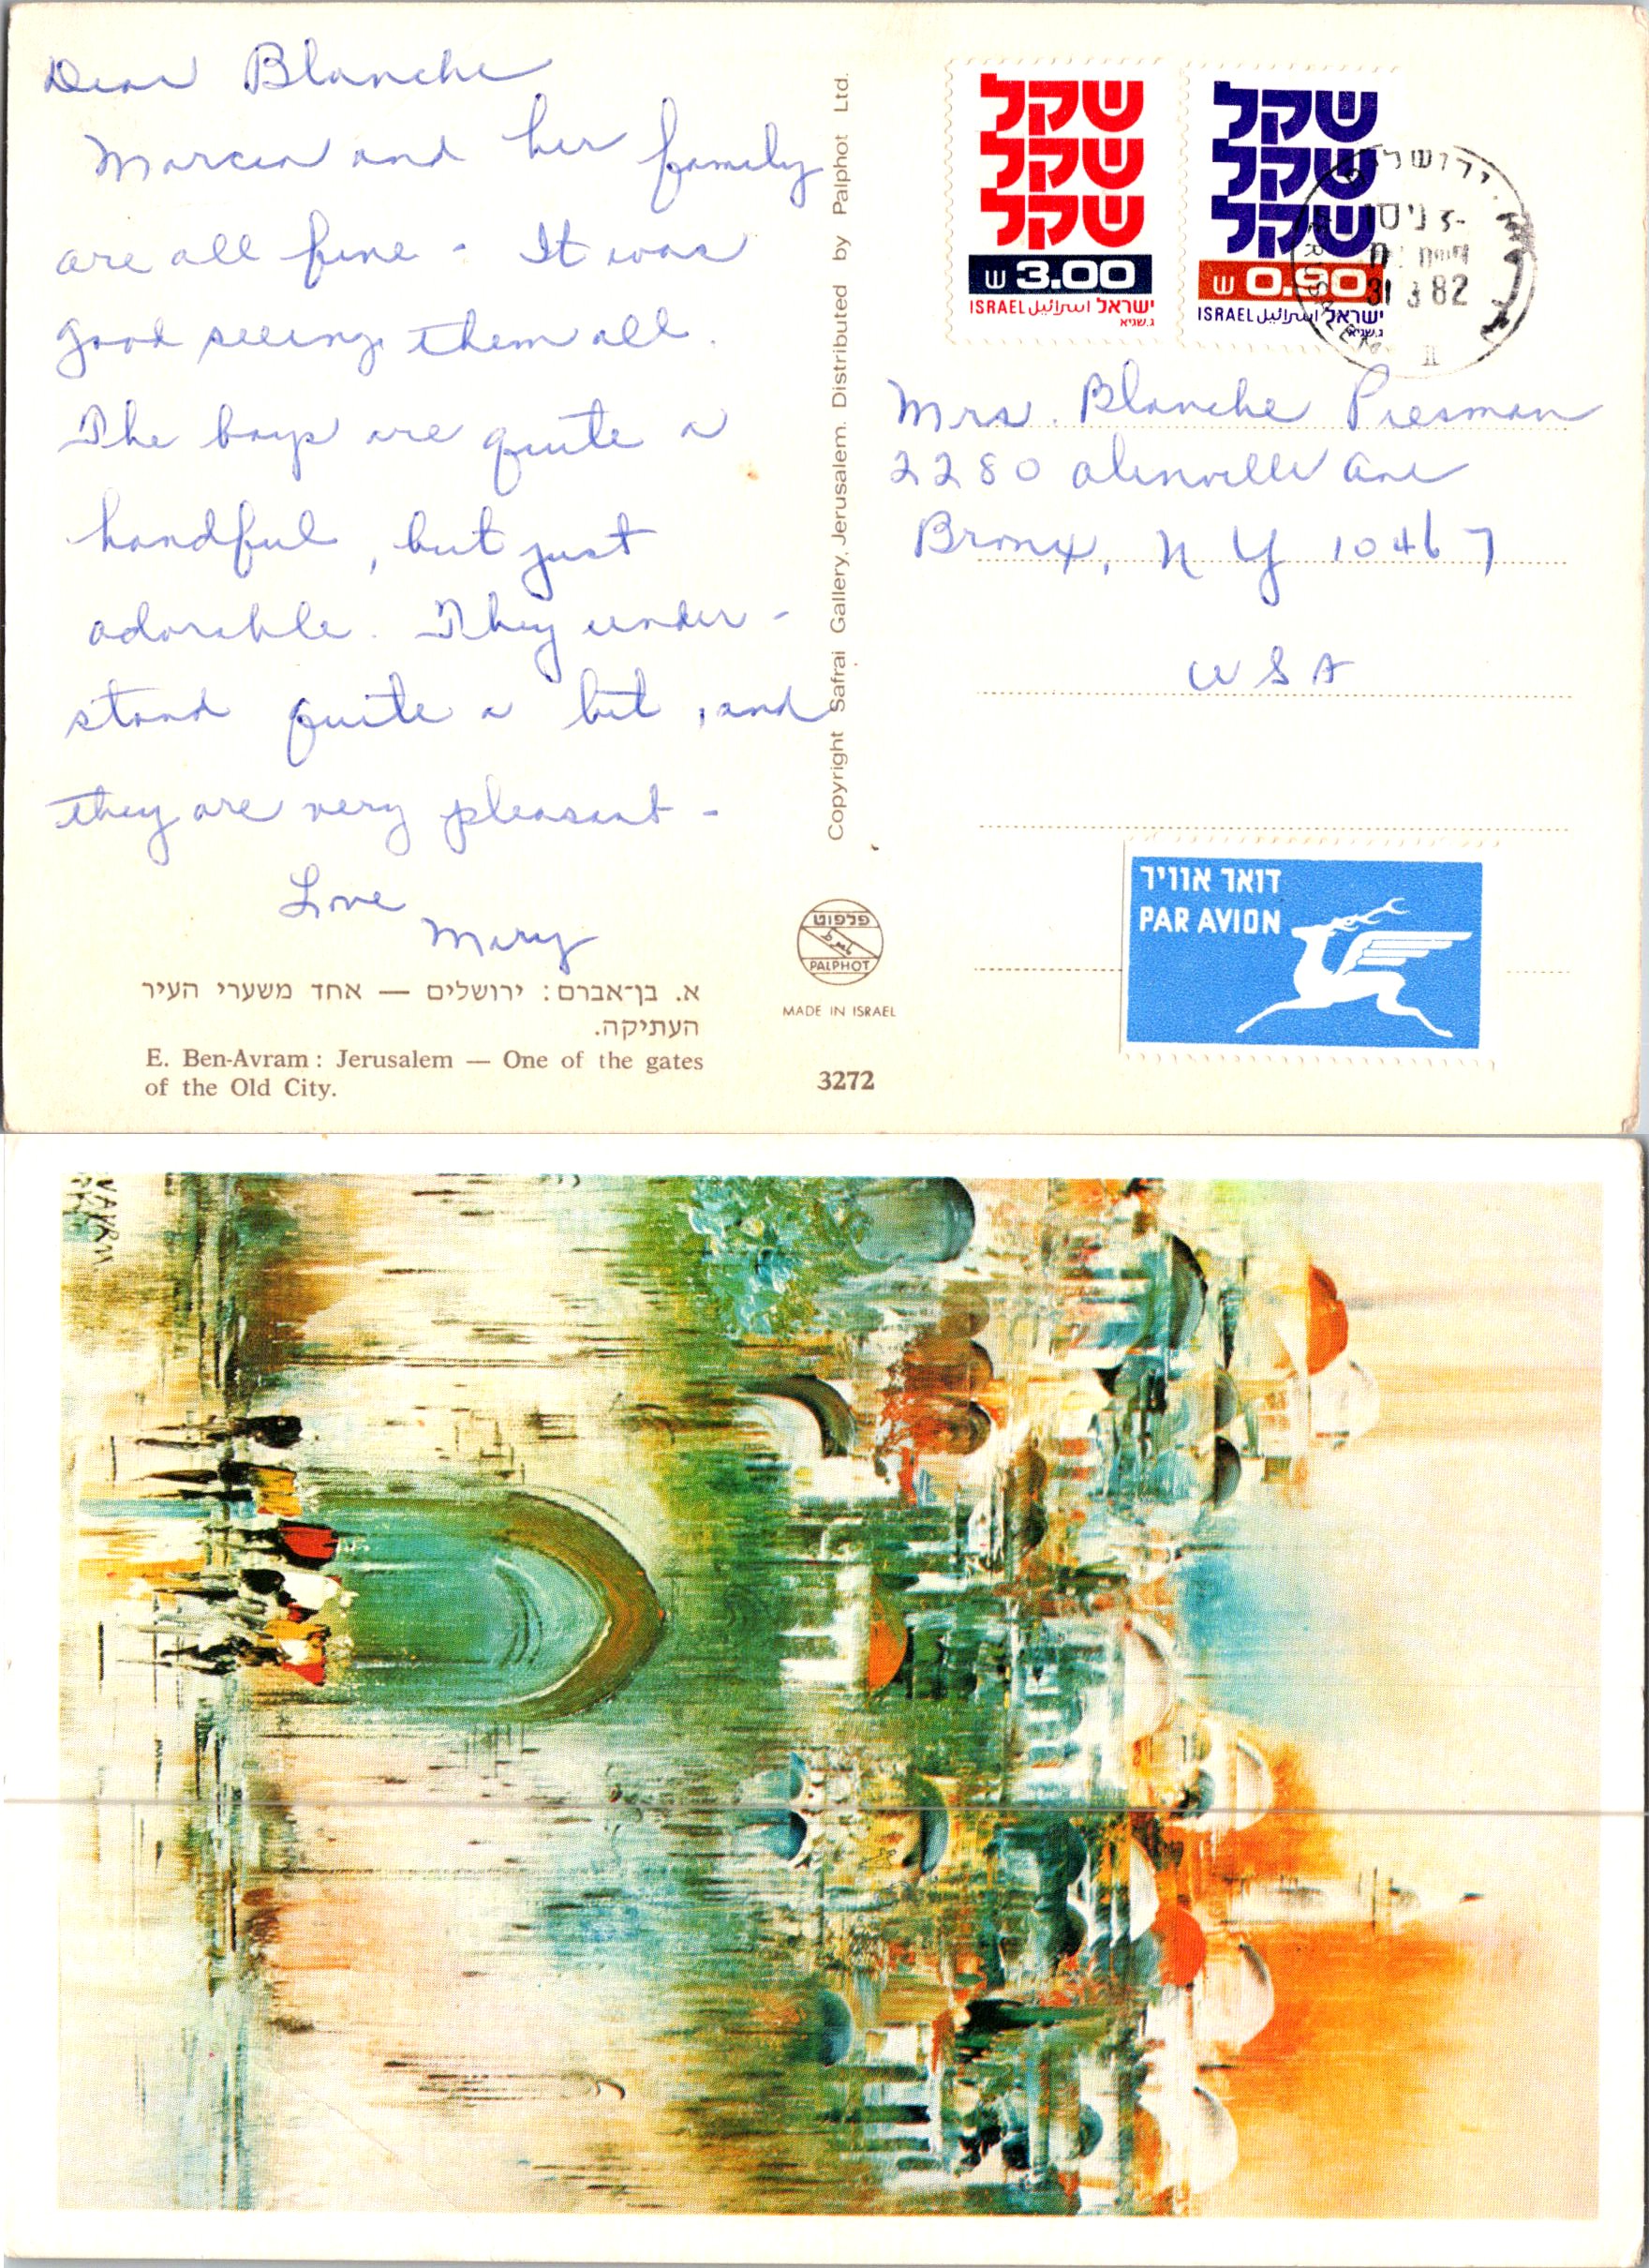 Dear Blanche
Marcia and her family
are all fine - It was
good seeing them all.
The boys are quite a
handful, but just
adorable. They under-
stand quite a bit, and
they are very pleasant -
Love
Mary
א. בן־אברם: ירושלים — אחד משערי העיר
העתיקה.
E. Ben-Avram: Jerusalem — One of the gates
of the Old City.
Copyright Safrai Gallery, Jerusalem. Distributed by Palphot Ltd.
פלפוט
PALPHOT
MADE IN ISRAEL
3272
שקל
שקל
שקל
ש 3.00
ISRAEL اسرائيل ישראל
ג.שגיא
שקל
שקל
שקל
ש 0.90
ISRAEL اسرائيل ישראל
ג.שגיא
ירושלים
31 3 82
JERUSALEM
Mrs. Blanche Presman
2280 Olinville Ave
Bronx, NY 10467
USA
דואר אוויר
PAR AVION